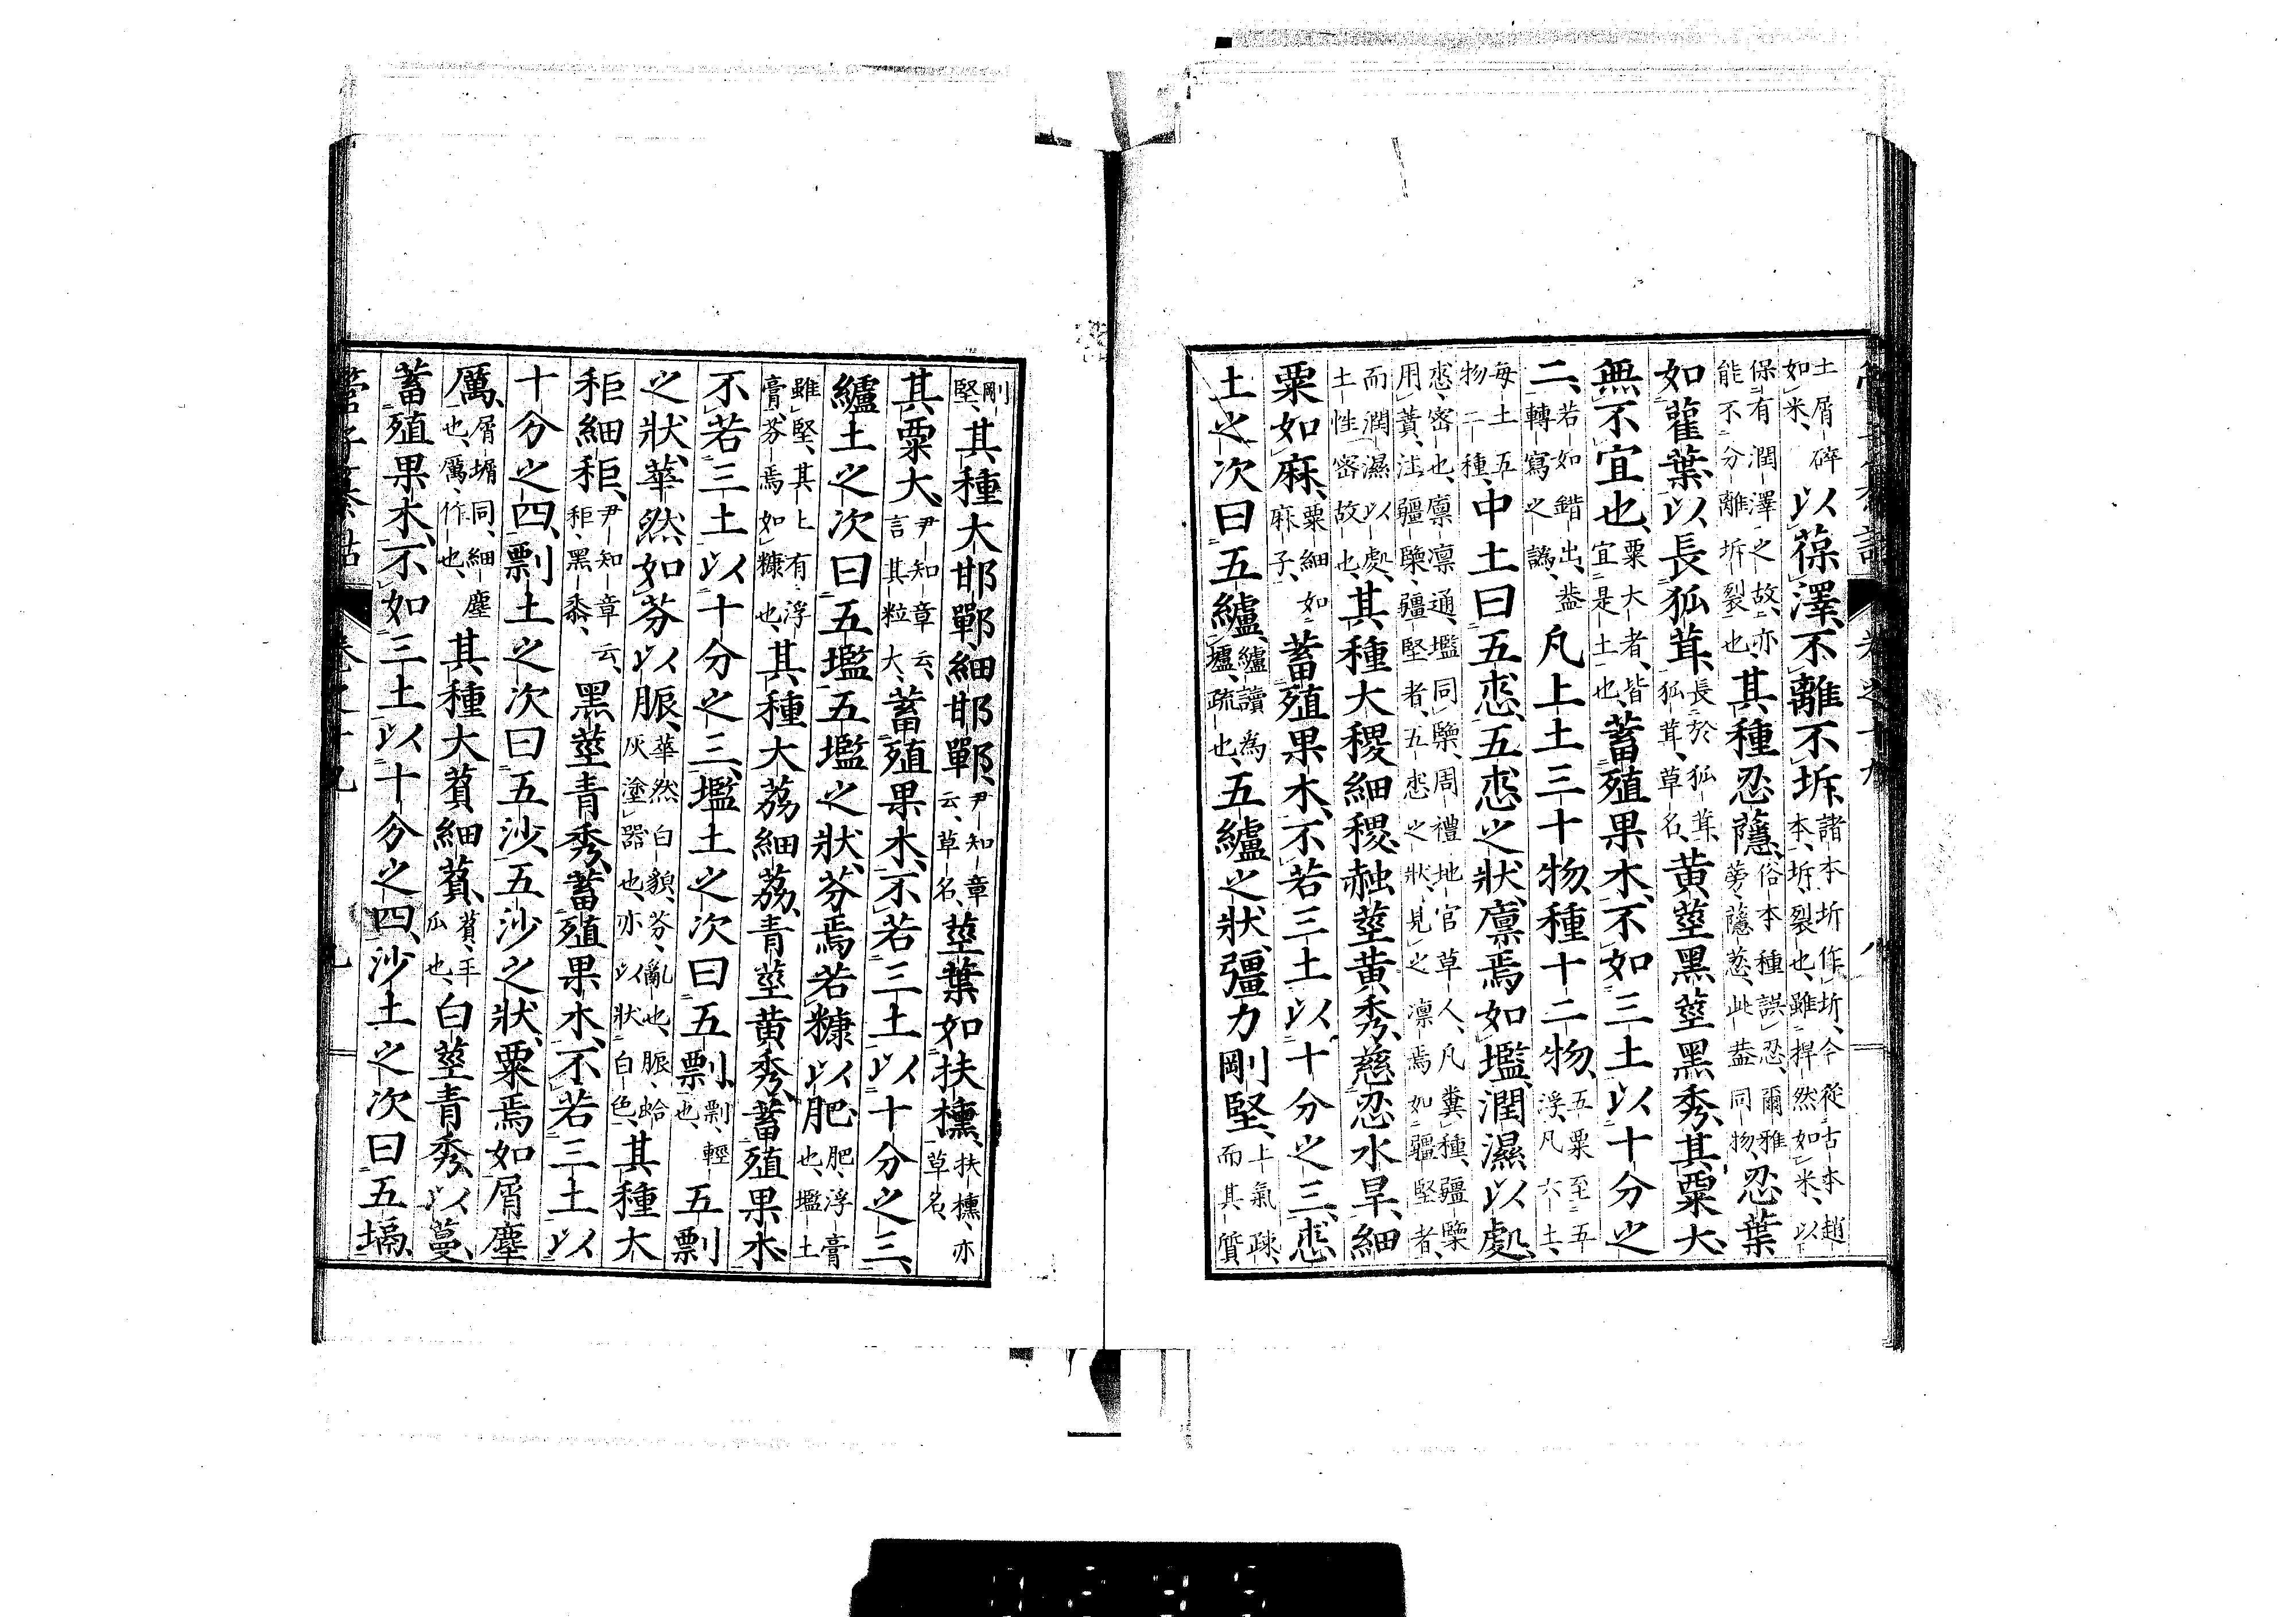 土屑碎如米、以葆澤、不離不坼、諸本坼作圻、今從古本趙本、坼裂也、雖捍然如米、以
保有潤澤之故、亦能不分離坼裂也、其種忍蘟、俗本種誤忍、爾雅蒡、蘟葱、此葢同物、忍葉
如雚葉、以長狐茸、長於狐茸、狐茸、草名、黃莖黑莖黑秀、其粟大、
無不宜也、粟大者、皆宜是土也、蓄殖果木、不如三土以十分之
二、若如錯出、葢轉寫之譌、凡上土三十物、種十二物、五粟至五浮、凡六土、
每土五物二種、中土曰五怸、五怸之狀、廩焉如壏、潤濕以處、
怸、密也、廩凜通、壏同㯺、周禮地官草人、凡糞種、疆㯺用蕡、注疆㯺、疆堅者、五怸之狀、見之凜焉如疆堅者、
而潤濕以處、土性密故也、其種大稷細稷、赨莖黃秀、慈忍水旱、細
粟如麻、粟細如麻子、蓄殖果木、不若三土以十分之三、怸
土之次曰五纑、纑讀為壚、疏也、五纑之狀、彊力剛堅、上氣疎、而其質
剛堅、其種大邯鄲、細邯鄲、尹知章云、草名、莖葉如扶櫄、扶櫄、亦草名、
其粟大、尹知章云、言其粒大、蓄殖果木、不若三土以十分之三、
纑土之次曰五壏、五壏之狀、芬焉若糠以肥、肥、浮膏也、壏土
雖堅、其上有浮膏、芬焉如糠也、其種大荔細荔、青莖黃秀、蓄殖果木、
不若三土以十分之三、壏土之次曰五剽、剽、輕也、五剽
之狀、華然如芬以脤、華然白貌、芬、亂也、脤、蛤灰塗器也、亦以狀白色、其種大
秬細秬、尹知章云、秬、黑黍、黑莖青秀、蓄殖果木、不若三土以
十分之四、剽土之次曰五沙、五沙之狀、粟焉如屑塵
厲、屑塮同、細塵也、厲、作也、其種大萯細萯、萯、王瓜也、白莖青秀、以蔓、
蓄殖果木、不如三土以十分之四、沙土之次曰五塥、